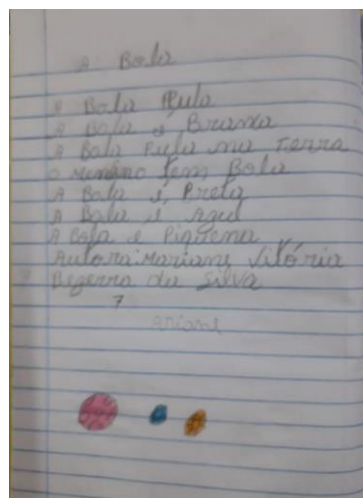 A Bola
A Bola Pula
A Bola é Branca
A Bola Pula na Terra
O menino tem Bola
A Bola é Preta
A Bola é Azul
A Bola é Piquena
Autora: Mariane Vitória
Bezerra da Silva
7
Ariane